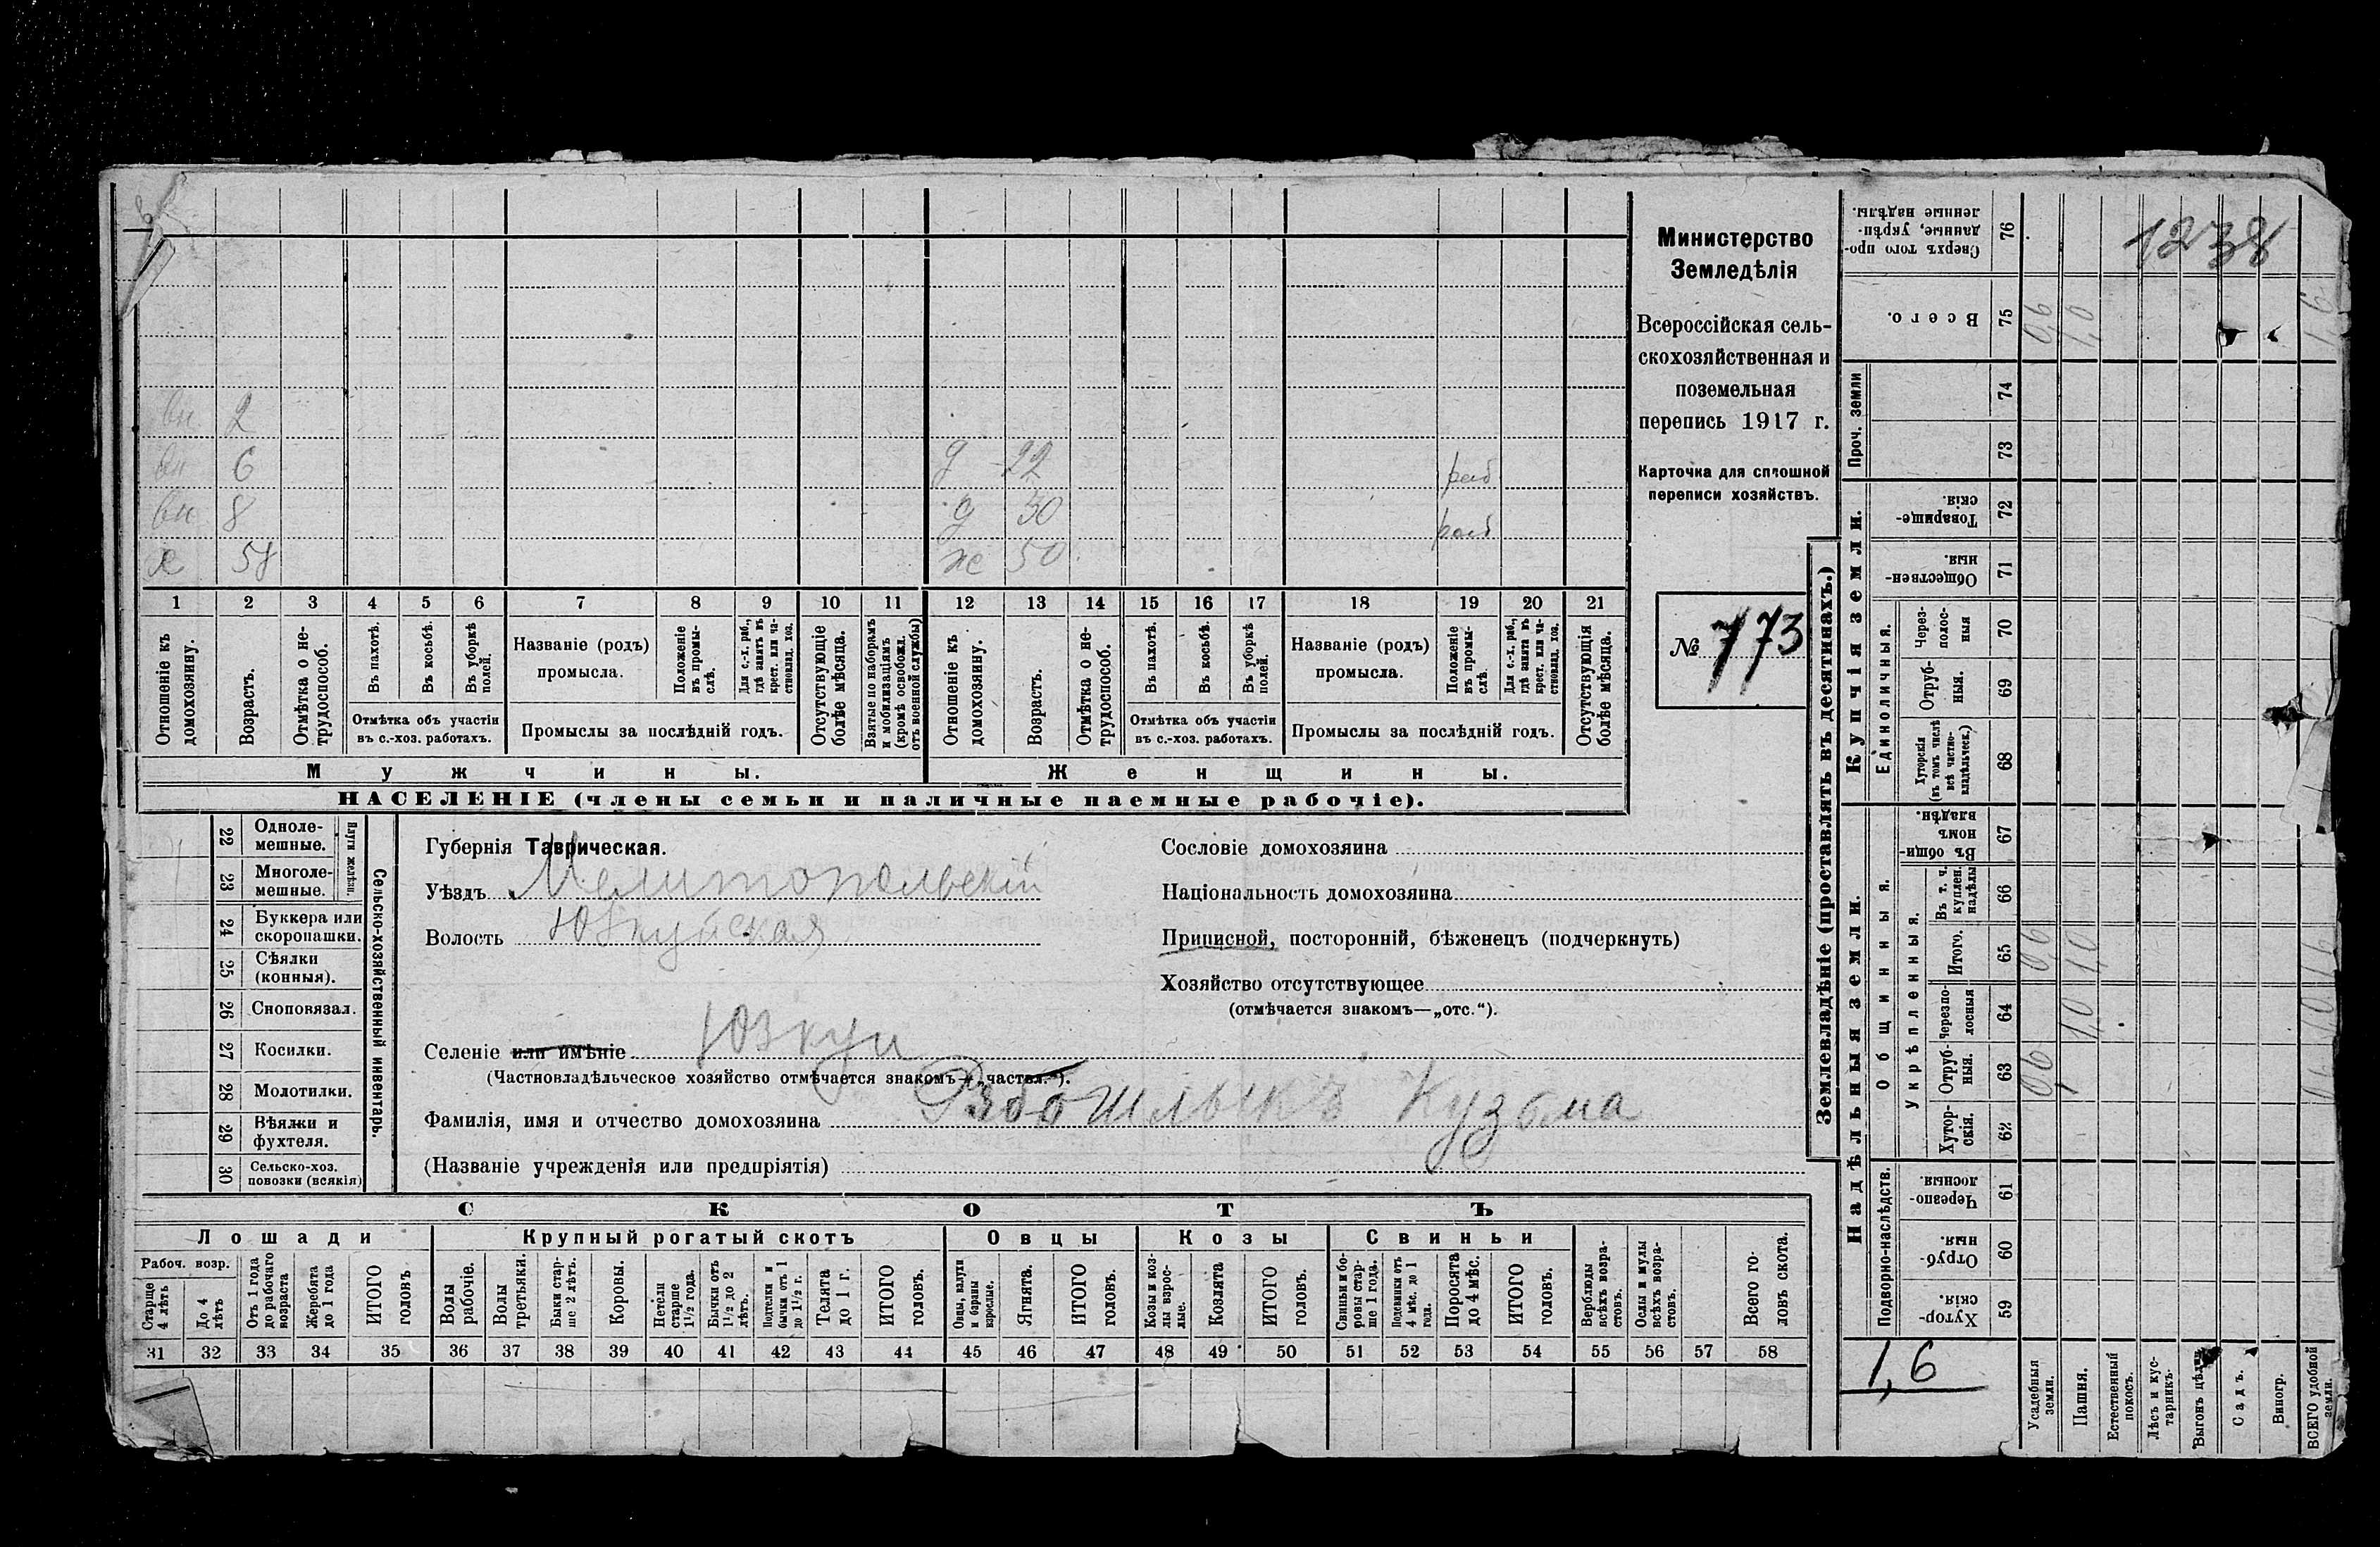 1238
Министерство
Земледѣлія
Всероссійская сель-
скохозяйственная и
поземельная
перепись 1917 г.
Карточка для сплошной
переписи хозяйствъ.
№ 773
вн 2
вн 6
д 22 раб
вн 8
д 30 раб
х 58
же 50
1 2 3 4 5 6 7 8 9 10 11 12 13 14 15 16 17 18 19 20 21
Отношеніе къ домохозяину.
Возрастъ.
Отмѣтка о не-
трудоспособ.
Въ пахотѣ.
Въ косьбѣ.
Въ уборкѣ
полей.
Отмѣтка объ участіи
въ с.-хоз. работахъ.
Названіе (родъ)
промысла.
Положеніе
въ промы-
слѣ.
Для с.-х. раб.,
гдѣ занятъ въ
крест. или ча-
стновлад. хоз.
Промыслы за послѣдній годъ.
Отсутствующіе
болѣе мѣсяца.
Взятые по наборамъ
и мобилизаціямъ
(кромѣ освобожд.
отъ военной службы)
Отношеніе къ
домохозяину.
Возрастъ.
Отмѣтка о не-
трудоспособ.
Въ пахотѣ.
Въ косьбѣ.
Въ уборкѣ
полей.
Отмѣтка объ участіи
въ с.-хоз. работахъ.
Названіе (родъ)
промысла.
Положеніе
въ промы-
слѣ.
Для с.-х. раб.,
гдѣ занята въ
крест. или ча-
стновлад. хоз.
Промыслы за послѣдній годъ.
Отсутствующія
болѣе мѣсяца.
Мужчины.
Женщины.
НАСЕЛЕНІЕ (члены семьи и наличные наемные рабочіе).
Сельско-хозяйственный инвентарь.
Плуги желѣзн.
22 Одноле-
мешные.
23 Многоле-
мешные.
24 Буккера или
скоропашки.
25 Сѣялки
(конныя).
26 Сноповязал.
27 Косилки.
28 Молотилки.
29 Вѣялки и
фухтеля.
30 Сельско-хоз.
повозки (всякія)
Губернія Таврическая.
Уѣздъ Мелитопольскій
Волость Юзкуйская
Селеніе или имѣніе Юзкуи
(Частновладѣльческое хозяйство отмѣчается знакомъ—„частвл.“).
Фамилія, имя и отчество домохозяина Кузьма
(Названіе учрежденія или предпріятія)
Сословіе домохозяина
Національность домохозяина
Приписной, посторонній, бѣженецъ (подчеркнуть)
Хозяйство отсутствующее
(отмѣчается знакомъ—„отс.“).
СКОТЪ
Лошади
Крупный рогатый скотъ
Овцы
Козы
Свиньи
Рабоч. возр.
Старше
4 лѣтъ
До 4
лѣтъ
Отъ 1 года
до рабочаго
возраста
Жеребята
до 1 года
ИТОГО
головъ.
Волы
рабочіе.
Волы
третьяки.
Быки стар-
ше 2 лѣтъ.
Коровы.
Нетели
старше
1½ года.
Бычки отъ
1½ до 2
лѣтъ.
Подтелки и
бычки отъ 1
до 1½ г.
Телята
до 1 г.
ИТОГО
головъ.
Овцы, валухи
и бараны
взрослые.
Ягнята.
ИТОГО
головъ.
Козы и коз-
лы взрос-
лые.
Козлята
ИТОГО
головъ.
Свиньи и бо-
ровы стар-
ше 1 года.
Подсвинки отъ
4 мѣс. до 1
года.
Поросята
до 4 мѣс.
ИТОГО
головъ.
Верблюды
всѣхъ возра-
стовъ.
Ослы и мулы
всѣхъ возра-
стовъ.
Всего го-
ловъ скота.
31 32 33 34 35 36 37 38 39 40 41 42 43 44 45 46 47 48 49 50 51 52 53 54 55 56 57 58
Землевладѣніе (проставлять въ десятинахъ.)
Купчія земли.
Надѣльныя земли.
76 Сверхъ того про-
данные, укрѣп-
ленные надѣлы.
75 Всего. 0,6 1,0 1,6
Проч. земли
74
73
72 Товарище-
скія.
71 Обществен-
ныя.
Единоличныя.
70 Через-
полос-
ныя
69 Отруб-
ныя.
68 Хуторскія
(въ томъ числѣ
всѣ частно-
владѣльческ.)
Общинныя.
67 Въ общи-
номъ
владѣн.
Укрѣпленныя.
66 Въ т. ч.
куплен.
надѣлы
65 Итого. 0,6 1,0 1,6
64 Черезпо-
лосныя 1,0 1,0
63 Отруб-
ныя. 0,6 0,6
62 Хутор-
скія.
Подворно-наслѣдств.
61 Черезпо-
лосныя.
60 Отруб-
ныя.
59 Хутор-
скія.
1,6
Усадебныя
земли.
Пашня.
Естественный
покосъ.
Лѣсъ и кус-
тарникъ.
Выгонъ цѣлин.
Садъ.
Виногр.
ВСЕГО удобной
земли.